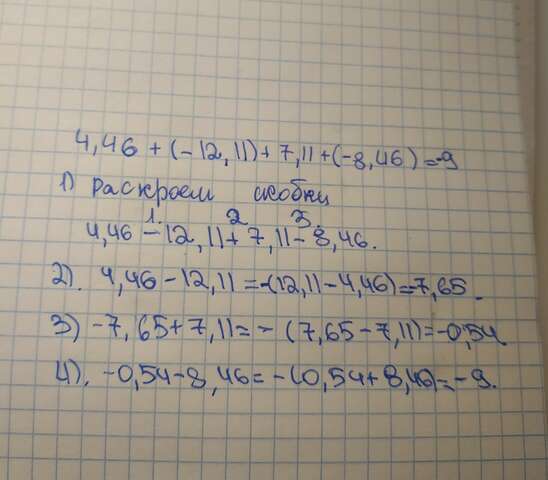 4,46 + (-12,11) + 7,11 + (-8,46) = -9
1) раскроем скобки
1. 2 3.
4,46 - 12,11 + 7,11 - 8,46.
2). 4,46 - 12,11 = -(12,11 - 4,46) = 7,65.
3) -7,65 + 7,11 = - (7,65 - 7,11) = -0,54.
4). -0,54 - 8,46 = -(0,54 + 8,46) = -9.